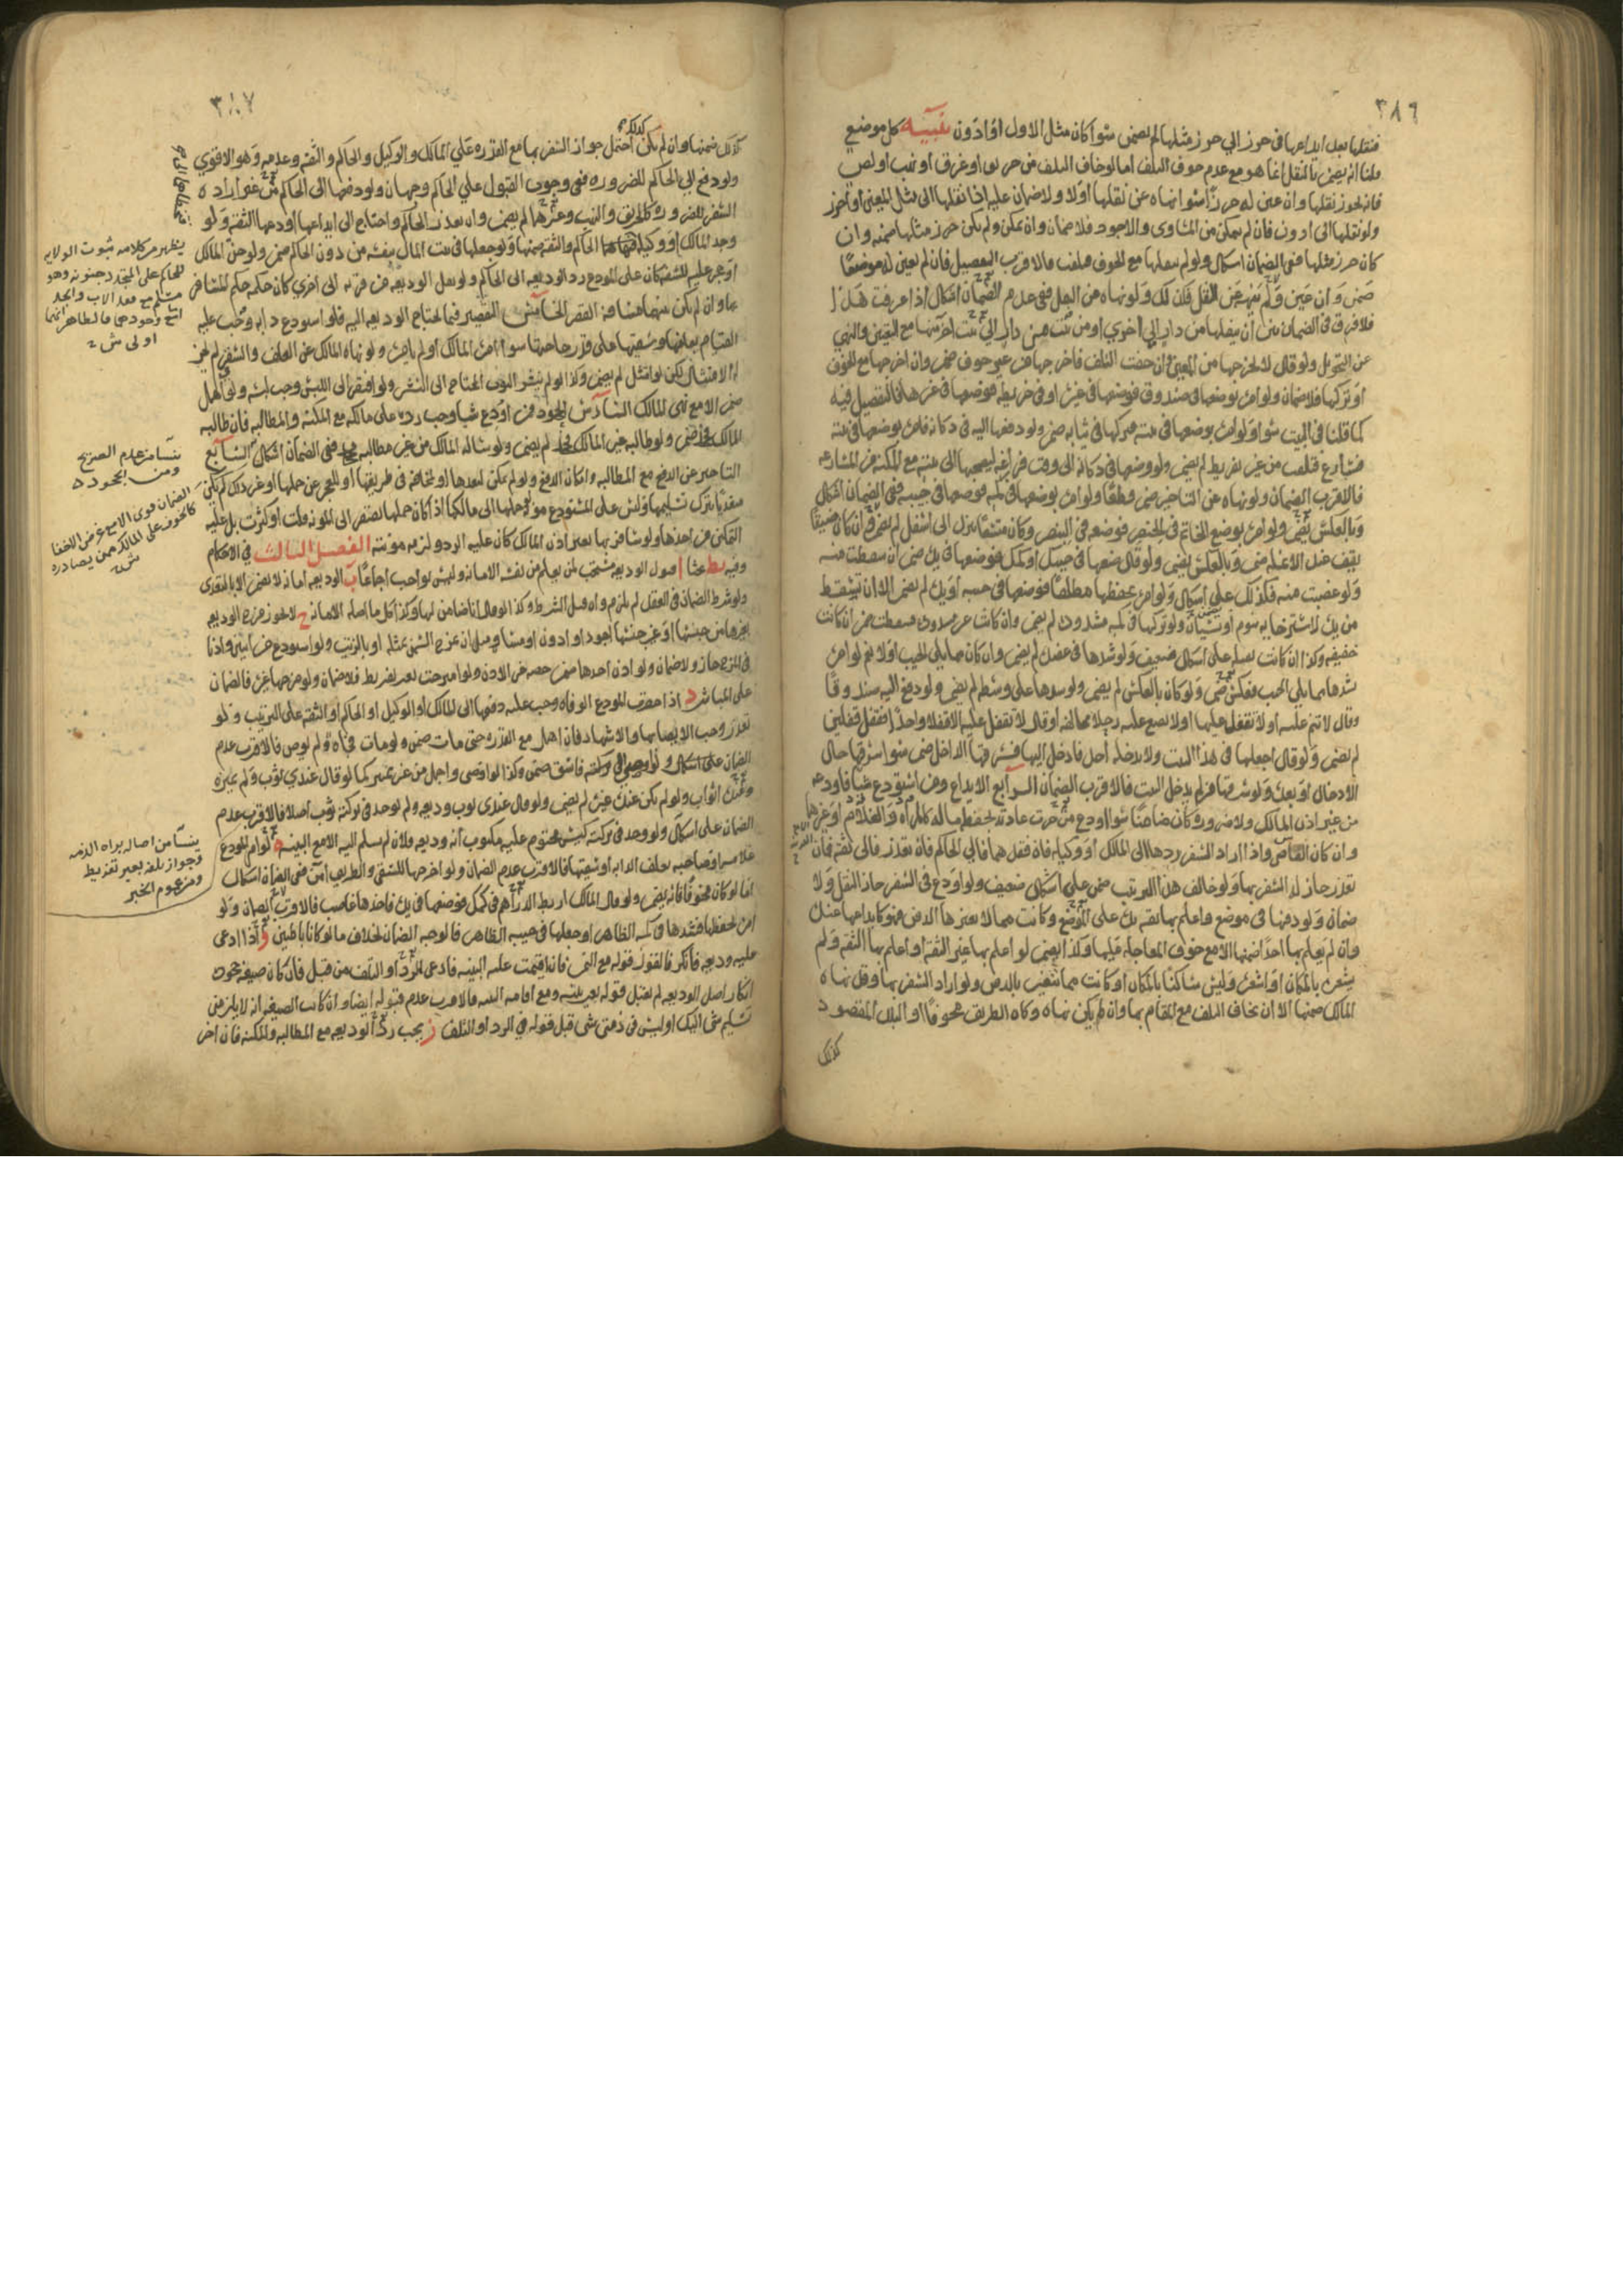 ٣٨٦
فنقلها بعد ايداعها في حرز الي حرز مثلها لم يضمن سوا كان مثل الاول او ادون تنبيه كل موضع
قلنا انه يضمن بالنقل انما هو مع عدم خوف التلف اما لو خاف التلف من حريق او غرق او نهب او لص
فانه يجوز نقلها وان عين له حرزا سوا نهاه عن نقلها او لا ولا ضمان عليه اذا نقلها الى مثل المعين او احرز
ولو نقلها الى ادون فان لم يتمكن من المساوى والاجود فلا ضمان وان تمكن ولم يكن حرز مثلها ضمنه وان
كان حرز مثلها ففى الضمان اشكال ولو لم ينقلها مع الخوف فتلفت فالاقرب التفصيل فان لم يعين له موضعا
ضمن وان عين ولم ينهه عن النقل فكذلك ولو نهاه عن النقل ففى عدم الضمان اشكال اذا عرفت هذا
فلا فرق في الضمان بين ان ينقلها من دار الي اخري او من بيت من دار الي بيت اخر منها مع التعيين والنهي
عن التحويل ولو قال لا تخرجها من المعين وان خفت التلف فاخرجها من غير خوف ضمن وان اخرجها مع الخوف
او تركها فلا ضمان ولو امره بوضعها في صندوق فوضعها في غيره او في خريطة فوضعها في غيرها فالتفصيل فيه
كما قلنا في البيت سوا ولو امره بوضعها في بيته فتركها في ثيابه ضمن ولو دفعها اليه في دكانه فامره بوضعها في بيته
فسارع فتلفت من غير تفريط لم يضمن ولو وضعها في دكانه الى وقت فراغه ليصحبها الى بيته مع المكنة من المسارعه
فالاقرب الضمان ولو نهاه عن التاخير ضمن قطعا ولو امره بوضعها في كمه فوضعها في جيبه ففي الضمان اشكال
وبالعكس يضمن ولو امره بوضع الخاتم في الخنصر فوضعه في البنصر وكان متسعا ينزل الى اسفل لم يضمن وان كان ضيقا
يقف عند الاعلى ضمن وبالعكس يضمن ولو قال ضعها في جيبك او كمك فوضعها في يده ضمن ان سقطت منه
ولو غصبت منه فكذلك على اشكال ولو امره بحفظها مطلقا فوضعها في جيبه او يده لم يضمن الا ان تسقط
من يده لاسترخا به بنوم او نسيان ولو تركها في كمه مشدودة لم يضمن وان كانت غير مشدوده فسقطت ضمن ان كانت
خفيفه وكذا ان كانت ثقيله على اشكال ضعيف ولو شدها في عضده لم يضمن وان كان مما يلي الجيب او لا نعم لو امره
بشدها مما يلي الجيب فعكس ضمن ولو كان بالعكس لم يضمن ولو شدها على وسطه لم يضمن ولو دفع اليه صندوقا
وقال لا تنم عليه او لا تقفل عليها او لا تضع عليه رحلا فخالفه او قال لا تقفل عليه الا قفلا واحدا فقفل قفلين
لم يضمن ولو قال اجعلها في هذا البيت ولا يدخله احد فادخل اليها فسرقها الداخل ضمن سوا سرقها حال
الادخال او بعده ولو سرقها من لم يدخل البيت فالاقرب الضمان الرابع الايداع ومن استودع شيا فاودعه
من غير اذن المالك ولا ضرورة كان ضامنا سوا اودع من جرت عادته بحفظ ماله كالمراه والغلام او غيرهما
وان كان القاضي واذا اراد السفر ردها الى المالك او وكيله فان فقدهما فالي الحاكم فان تعذر فالى ثقه فان
تعذر جاز له السفر بها ولو خالف هذا الترتيب ضمن على اشكال ضعيف ولو اودع في السفر جاز النقل ولا
ضمان ولو دفنها في موضع واعلم بها ثقه يده على الموضع وكانت مما لا يضرها الدفن فهو كايداعها عنده
وان لم يعلم بها احدا ضمنها الا مع خوف المعاجله عليها وكذا يضمن لو اعلم بها غير الثقه او اعلم بها الثقه ولم
يشعره بالمكان او اشعره وليس ساكنا بالمكان او كانت مما تتعيب بالدفن ولو اراد السفر بها وقد نهاه
المالك ضمنها الا ان يخاف التلف مع المقام بها وان لم يكن نهاه وكان الطريق مخوفا او البلد المقصود
كذلك
٣٨٧
كذلك ضمنها وان لم يكن كذلك احتمل جواز السفر بها مع القدره علي المالك والوكيل والحاكم والثقه وعدمه وهو الاقوي
ولو دفع الى الحاكم للضروره ففى وجوب القبول علي الحاكم وجهان ولو دفعها الى الحاكم من غير اراده
السفر للضروره كالحريق والنهب وغيرهما لم يضمن وان تعذر الحاكم واحتاج الى ايداعها اودعها الثقه ولو
وجد المالك او وكيله الحاكم والثقه ضمنها ولو جعلها في بيت المال بنفسه من دون الحاكم ضمن ولو جن المالك
او حجر عليه للسفه كان على المودع رد الوديعه الى الحاكم ولو نقل الوديعه من قريه الى اخري كان حكمه حكم المسافر
بها وان لم يكن بينهما مسافة القصر الخامس التقصير فيما تحتاج الوديعه اليه فلو استودع دابه وجب عليه
القيام بعلفها وسقيها على قدر حاجتها سوا امره المالك او لم يامره ولو نهاه المالك عن العلف والسقي لم يجز
له الامتثال لكن لو امتثل لم يضمن وكذا لو لم ينشر الثوب المحتاج الى النشر ولو افتقر الى اللبس وجب لبسه ولو اهمل
ضمن الا مع نهى المالك السادس الجحود من اودع شيا وجب رده على مالكه مع المكنه والمطالبه فان طالبه
المالك فجحد ضمن ولو طالبه غير المالك فجحد لم يضمن ولو ساله المالك من غير مطالبه فجحد ففى الضمان اشكال السابع
التاخير عن الدفع مع المطالبه وامكان الدفع ولو لم يمكن لبعدها او لمخافه في طريقها او للعجز عن حملها او غير ذلك لم يكن
متعديا بترك تسليمها وليس على المستودع مؤنة حملها الى مالكها اذا كان حملها يفتقر الى المؤنه قلت او كثرت بل عليه
التمكين من اخذها ولو سافر بها بغير اذن المالك كان عليه الرد ولزمه مؤنته الفصل الثالث في الاحكام
وفيه يط بحثا ا قبول الوديعه مستحب لمن يعلم من نفسه الامانه وليس بواجب اجماعا ب الوديعه امانه لا تضمن الا بالتعدى
ولو شرط الضمان في العقد لم يلزم وان قبل الشرط وكذا لو قال انا ضامن لها وكذا كل ما اصله الامانه ج لا يجوز مزج الوديعه
بغيرها من جنسها او غير جنسها اجود او ادون او مساو
في المزج جاز ولا ضمان ولو اذن احدهما ضمن حصه غير الاذن ولو امتزجت بغير تفريط فلا ضمان ولو مزجها غيره فالضمان
على المباشر د اذا حضرت المودع الوفاه وجب عليه دفعها الى المالك او الوكيل او الحاكم او الثقه على الترتيب ولو
تعذر وجب الايصا بها والاشهاد فان اهمل مع القدره حتى مات ضمن ولو مات فجاه ولم يوص فالاقرب عدم
الضمان على اشكال فاسق ضمن وكذا لو اوصى واجمل من غير تمييز كما لو قال عندي ثوب ولم يميزه
وعنده اثواب ولو لم يكن عنده غيره لم يضمن ولو قال عندى ثوب وديعه ولم يوجد في تركته ثوب اصلا فالاقرب عدم
الضمان على اشكال ولو وجد في تركته كيس مختوم عليه مكتوب انه وديعه فلان لم يسلم اليه الا مع البينه ه لو امر المودع
غلامه او صاحبه بعلف الدابه او سقيها فالاقرب عدم الضمان ولو اخرجها للسقي والطريق امن ففى الضمان اشكال
اما لو كان مخوفا فانه يضمن ولو قال المالك اربط الدراهم في كمك فوضعها في يده فاخذها غاصب فالاقرب الضمان ولو
امره بحفظها فشدها في كمه الظاهر او جعلها في جيبه الظاهر فالوجه الضمان بخلاف ما لو كانا باطنين و اذا ادعى
عليه وديعه فانكر فالقول قوله مع اليمين فان اقيمت عليه البينه فادعى الرد او التلف من قبل فان كان صيغه جحوده
انكار اصل الوديعه لم يقبل قوله بغير بينه ومع اقامه البينه فالاقرب عدم قبوله ايضا وان كانت الصيغه انه لا يلزمنى
تسليم شى اليك او ليس في ذمتي شى قبل قوله في الرد او التلف ز يجب رد الوديعه مع المطالبه والمكنه فان اخر
يظهر من كلامه ثبوت الولايه
للحاكم على المتجدد جنونه وهو
مسلم مع فقد الاب والجد
اما مع وجودهما فالظاهر انهما
اولى ش
ينشا من عدم الصريح
ومن الجحود
الضمان قوى الا مع غرض الاخفا
كالخوف على المالك ممن يصادره
ش
ينشا من اصاله براه الذمه
وجواز تلفه بغير تفريط
ومن عموم الخبر